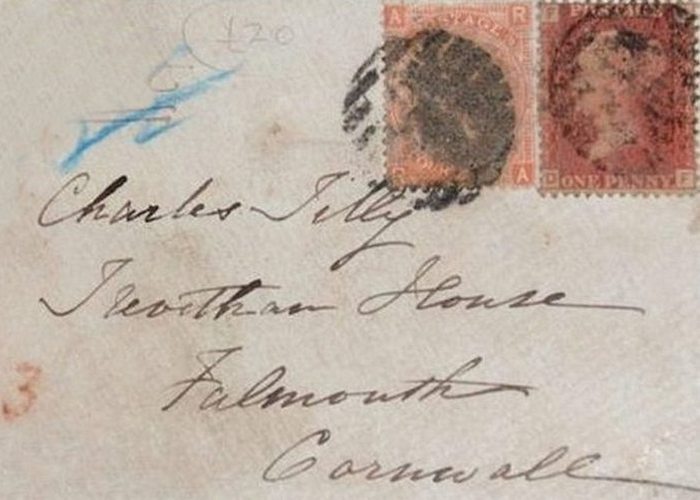 £20
A R
POSTAGE
A
ONE PENNY
Charles Tilly
Trevithan House
Falmouth
Cornwall
3